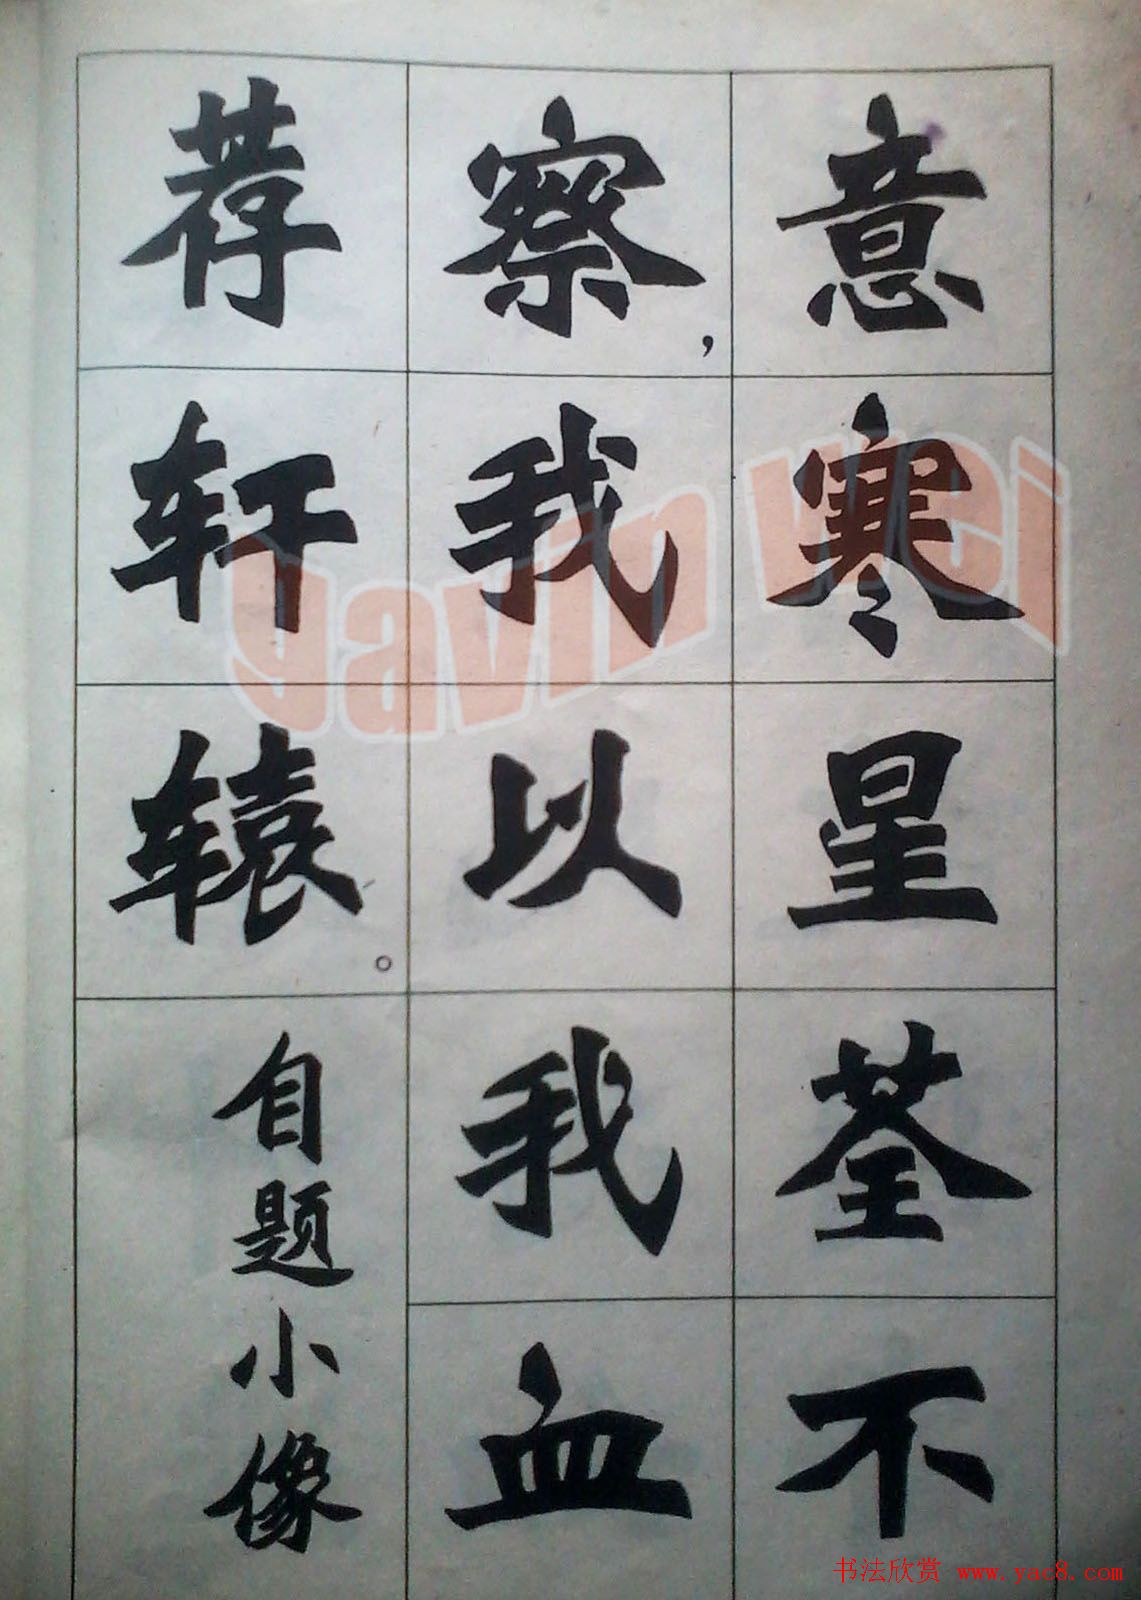 意寒星荃不
察，我以我血
荐轩辕。
自题小像
yavin wei
书法欣赏 www.yac8.com